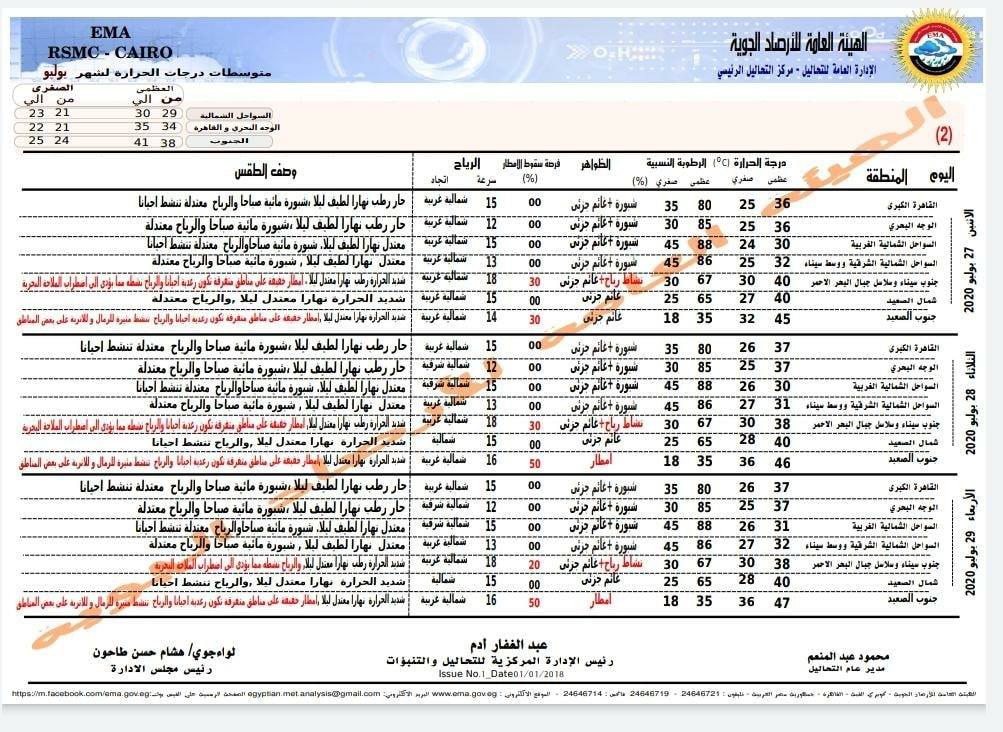 EMA
RSMC - CAIRO
الهيئة العامة للأرصاد الجوية
الإدارة العامة للتحاليل - مركز التحاليل الرئيسي
متوسطات درجات الحرارة لشهر يوليو
العظمى الصغرى
من الي من الي
السواحل الشمالية 29 30 21 23
الوجه البحري و القاهرة 34 35 21 22
الجنوب 38 41 24 25
(2)
اليوم المنطقة درجة الحرارة (°C) الرطوبة النسبية (%) الظواهر فرصة سقوط الامطار (%) الرياح وصف الطقس
عظمى صغرى عظمى صغرى سرعة اتجاه
الاثنين 27 يوليو 2020
القاهرة الكبرى 36 25 80 35 شبورة +غائم جزئى 00 15 شمالية غربية حار رطب نهارا لطيف ليلا ،شبورة مائية صباحا والرياح معتدلة تنشط احيانا
الوجه البحرى 36 25 85 30 شبورة +غائم جزئى 00 12 شمالية غربية حار رطب نهارا لطيف ليلا ،شبورة مائية صباحا والرياح معتدلة
السواحل الشمالية الغربية 30 24 88 45 شبورة +غائم جزئى 00 15 شمالية غربية معتدل نهارا لطيف ليلا، شبورة مائية صباحاوالرياح معتدلة تنشط احيانا
السواحل الشمالية الشرقية و وسط سيناء 32 25 86 45 شبورة +غائم جزئى 00 13 شمالية غربية معتدل نهارا لطيف ليلا , شبورة مائية صباحا والرياح معتدلة
جنوب سيناء وسلاسل جبال البحر الاحمر 40 30 67 30 نشاط رياح+غائم جزئى 30 18 شمالية غربية شديد الحرارة رطب نهارا معتدل ليلا، امطار خفيفة على مناطق متفرقة تكون رعدية احيانا والرياح نشطه مما يؤدى الى اضطراب الملاحة البحرية
شمال الصعيد 40 27 65 25 غائم جزئى 00 15 شمالية غربية شديد الحرارة نهارا معتدل ليلا ,والرياح معتدلة
جنوب الصعيد 45 32 35 18 غائم جزئى 30 14 شمالية غربية شديد الحرارة نهارا معتدل ليلا ,امطار خفيفة على مناطق متفرقة تكون رعدية احيانا والرياح تنشط مثيرة للرمال و للاتربة على بعض المناطق
الثلاثاء 28 يوليو 2020
القاهرة الكبرى 37 26 80 35 شبورة +غائم جزئى 00 15 شمالية غربية حار رطب نهارا لطيف ليلا ،شبورة مائية صباحا والرياح معتدلة تنشط احيانا
الوجه البحرى 37 25 85 30 شبورة +غائم جزئى 00 12 شمالية شرقية حار رطب نهارا لطيف ليلا ،شبورة مائية صباحا والرياح معتدلة
السواحل الشمالية الغربية 30 26 88 45 شبورة +غائم جزئى 00 15 شمالية شرقية معتدل نهارا لطيف ليلا، شبورة مائية صباحاوالرياح معتدلة تنشط احيانا
السواحل الشمالية الشرقية و وسط سيناء 31 27 86 45 شبورة +غائم جزئى 00 13 شمالية غربية معتدل نهارا لطيف ليلا , شبورة مائية صباحا والرياح معتدلة
جنوب سيناء وسلاسل جبال البحر الاحمر 38 30 67 30 نشاط رياح+غائم جزئى 30 18 شمالية غربية شديد الحرارة رطب نهارا معتدل ليلا، امطار خفيفة على مناطق متفرقة تكون رعدية احيانا والرياح نشطه مما يؤدى الى اضطراب الملاحة البحرية
شمال الصعيد 40 28 65 25 غائم جزئى 00 15 شمالية شديد الحرارة نهارا معتدل ليلا ,والرياح تنشط احيانا
جنوب الصعيد 46 36 35 18 امطار 50 16 شمالية غربية شديد الحرارة نهارا معتدل ليلا ,امطار خفيفة على مناطق متفرقة تكون رعدية احيانا والرياح تنشط مثيرة للرمال و للاتربة على بعض المناطق
الأربعاء 29 يوليو 2020
القاهرة الكبرى 37 26 80 35 شبورة +غائم جزئى 00 15 شمالية غربية حار رطب نهارا لطيف ليلا ،شبورة مائية صباحا والرياح معتدلة تنشط احيانا
الوجه البحرى 37 25 85 30 شبورة +غائم جزئى 00 12 شمالية غربية حار رطب نهارا لطيف ليلا ،شبورة مائية صباحا والرياح معتدلة
السواحل الشمالية الغربية 31 26 88 45 شبورة +غائم جزئى 00 15 شمالية شرقية معتدل نهارا لطيف ليلا، شبورة مائية صباحاوالرياح معتدلة تنشط احيانا
السواحل الشمالية الشرقية و وسط سيناء 32 27 86 45 شبورة +غائم جزئى 00 13 شمالية غربية معتدل نهارا لطيف ليلا , شبورة مائية صباحا والرياح معتدلة
جنوب سيناء وسلاسل جبال البحر الاحمر 38 30 67 30 نشاط رياح+غائم جزئى 20 18 شمالية غربية شديد الحرارة رطب نهارا معتدل ليلا، والرياح نشطه مما يؤدى الى اضطراب الملاحة البحرية
شمال الصعيد 40 28 65 25 غائم جزئى 00 15 شمالية شديد الحرارة نهارا معتدل ليلا ,والرياح تنشط احيانا
جنوب الصعيد 47 36 35 18 امطار 50 16 شمالية غربية شديد الحرارة نهارا معتدل ليلا ,امطار خفيفة على مناطق متفرقة تكون رعدية احيانا والرياح تنشط مثيرة للرمال و للاتربة على بعض المناطق
محمود عبد المنعم
مدير عام التحاليل
عبد الغفار أدم
رئيس الإدارة المركزية للتحاليل والتنبؤات
Issue No.1_Date01/01/2018
لواءجوي/ هشام حسن طاحون
رئيس مجلس الادارة
الهيئة العامة للأرصاد الجوية - كوبري القبة - القاهرة - جمهورية مصر العربية - تليفون : 24646721 - 24646719 فاكس : 24646714 - الموقع الألكتروني : www.ema.gov.eg البريد الألكتروني: egyptian.met.analysis@gmail.com الصفحة الرسمية على الفيس بوك:https://m.facebook.com/ema.gov.eg